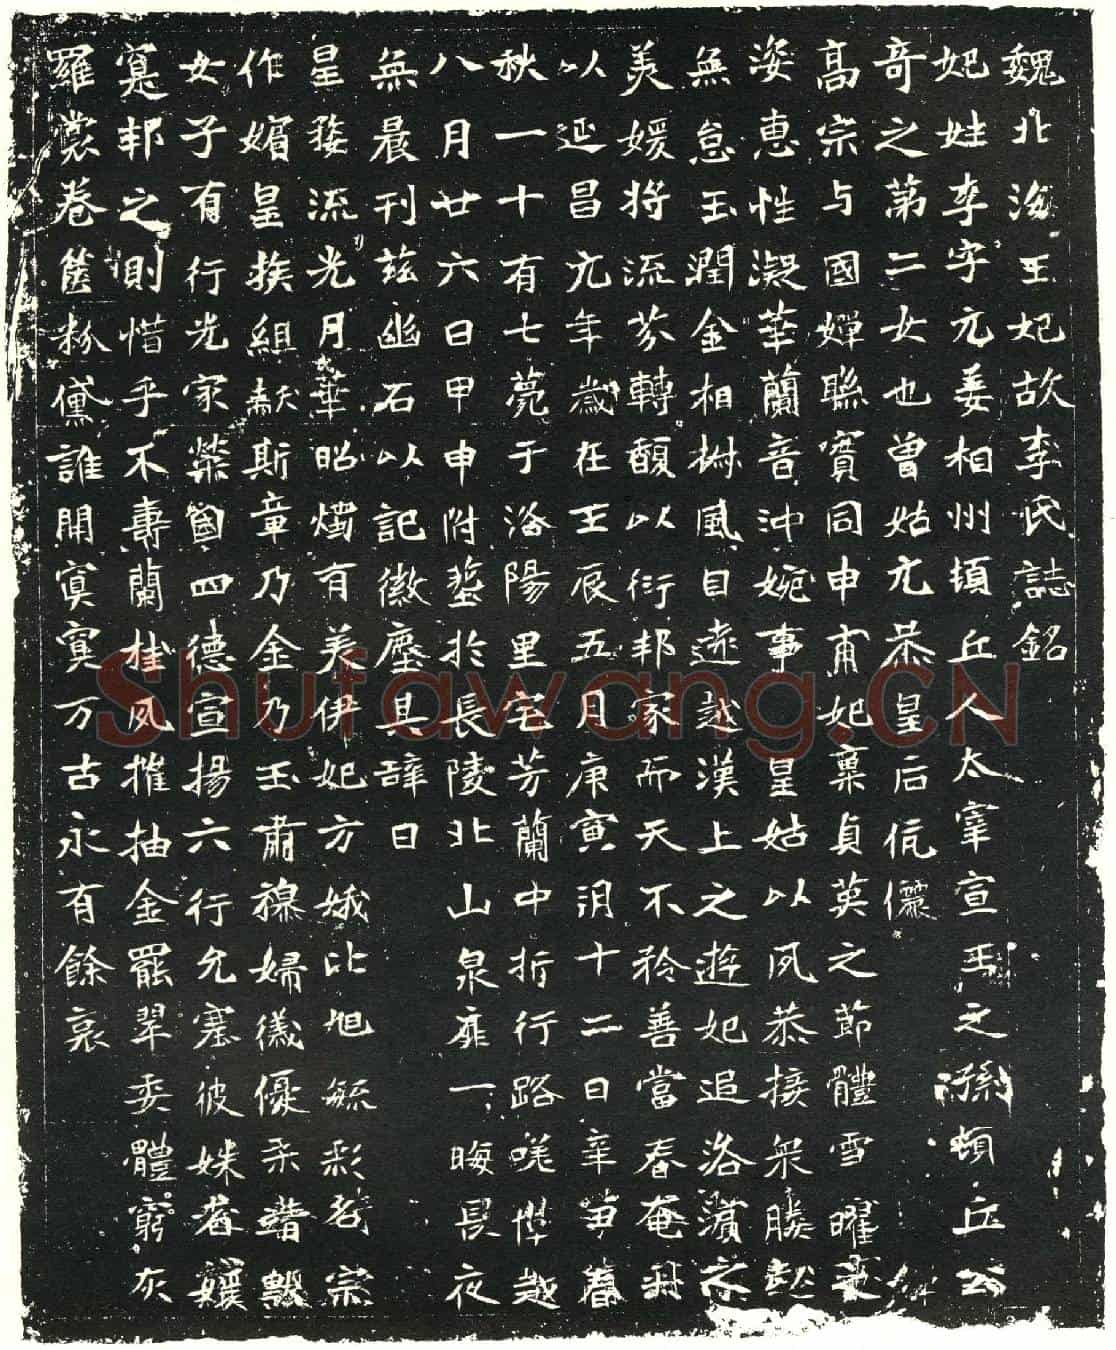 魏北海王妃故李氏誌銘
妃姓李字元姜相州頓丘人太宰宣王之孫頓丘公
奇之第二女也曾姑元恭皇后伉儷
高宗与國嬋聯賓同申甫妃稟貞英之節體雪曜
姿恵性凝華蘭音沖婉事皇姑以夙恭接衆媵
無怠玉潤金相林風自遠越漢上之遊妃追洛濱之
美媛将流芬轉馥以衍邦家而天不矜善當春奄
以延昌元年歳在王辰五月庚寅朔十二日辛丑春
秋一十有七薨于洛陽里宅芳蘭中折行路嗟悼越
八月廿六日甲申附塟於長陵北山泉扉一晦畏夜
無晨刊玆幽石以記徽塵其辞曰
皇婺流光月華昭燭有美伊妃方娥比旭毓彩名宗
作媚皇族組献斯章乃金乃玉肅穆婦儀優柔
女子有行光家榮國四德宣揚六行允塞彼姝者媛
寔邦之則惜乎不壽蘭桂夙摧抽金罷翠委體窮灰
羅裳卷篋粉黛誰開冥冥万古永有餘哀
Shufawang.CN